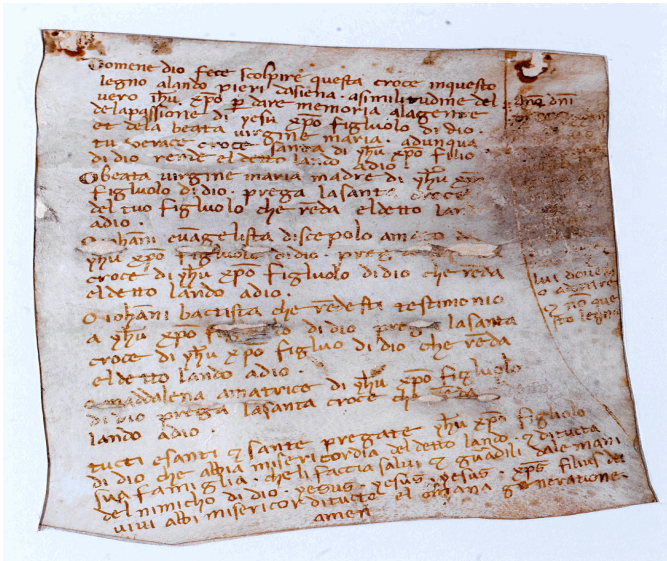 Domene dio fece scolpire questa croce inquesto
legno alando pieri dasiena · asimilitudine del
vero yhu xpo p dare memoria alagente
delapassione di yesu xpo figluolo di dio ·
et dela beata virgine maria · adunqua
tu verace croce santa di yhu xpo filio
di dio rende el detto lando adio ·
O beata virgine maria madre di yhu xpo
figluolo di dio · prega lasanta croce
del tuo figluolo che reda eldetto
adio ·
O iohani evagelista discepolo
yhu xpo figluolo di dio · preg
croce di yhu xpo figluolo di dio che reda
eldetto lando adio ·
O iohani bactista che redesti testimonio
a yhu xpo di dio prega lasanta
croce di yhu xpo figluo di dio che reda
eldetto lando adio ·
O maddalena amatrice di yhu xpo figluolo
di dio prega lasanta croce che reda
lando adio ·
tucti esanti & sante pregate yhu xpo figluolo
di dio che abbia misericordia deldetto lando · & di tucta
sua famiglia · che li faccia salvi & guardili dale mani
del nimicho di dio · yesus · yesus · yesus · xps filius dei
vivi abbi misericordi ditucte el omana generatione ·
amen
Ano dni